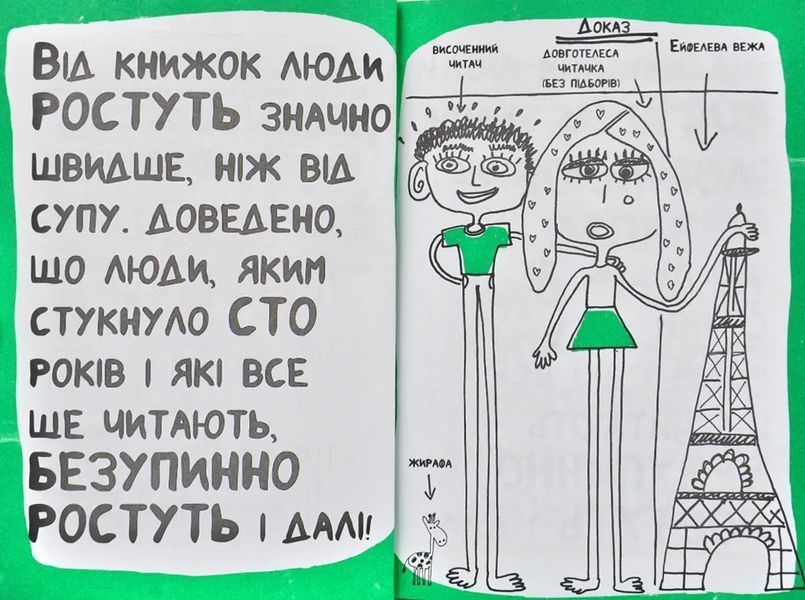 Від книжок люди
РОСТУТЬ значно
швидше, ніж від
супу. Доведено,
що люди, яким
стукнуло СТО
років і які все
ще читають,
БЕЗУПИННО
РОСТУТЬ і далі!
Доказ
височенний
читач
довготелеса
читачка
(без підборів)
Ейфелева вежа
жирафа